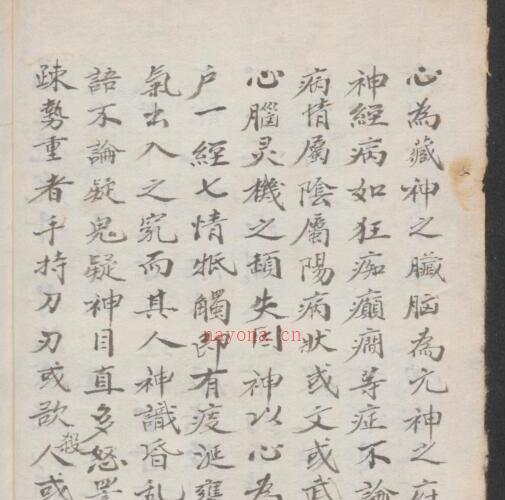 心為藏神之臟脑為元神之府
神經病如狂痴癲癇等症不論
病情屬陰屬陽病狀或文或武
心腦灵機之頓失因神以心為
户一經七情牴觸即有痰涎壅
氣出入之竅而其人神識昏乱
語不論疑鬼疑神目直多怒詈
踈勢重者手持刀刃或欲殺人或
nayona.cn